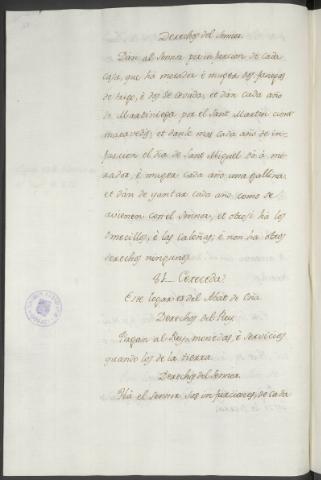 Derechos del Sennor
Dán al Sennor por infurcion de cada
casa, que há morador é muger dos fanegas
de trigo, é dos de cevada; et dan cada año
de Martiniega por el Sant Martin cient
maravedis; et danle mas cada año de in-
furcion el dia de Sant Miguel dó ó mo-
rador, é muger cada año una gallina;
et dán de yantar cada año como se
avienen con el Sennor, et otrosi há los
omecillos, é las caloñas; é non há otros
derechos ningunos
Cereceda
Este logar es del Abat de Oña
Derechos del Rey
Pagan al Rey monedas, é servicios
quando los de la tierra
Derechos del Sennor
Há el Sennor sus infurciones, de cada